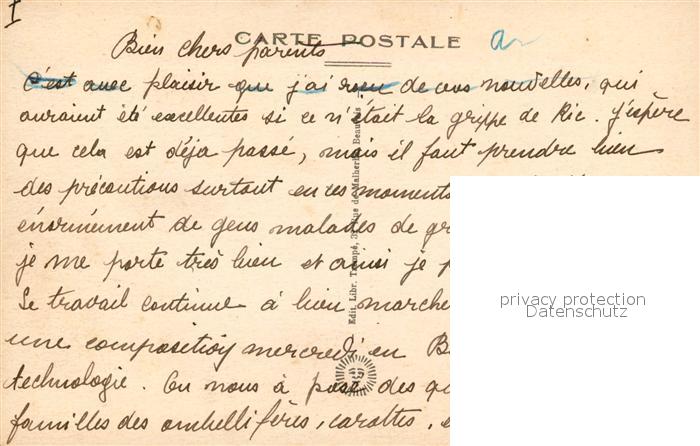 I
CARTE POSTALE
Bien chers parents
C'est avec plaisir que j'ai reçu de vos nouvelles, qui
auraient été excellentes si ce n'était la grippe de Ric. J'espère
que cela est déja passé, mais il faut prendre bien
des précautions surtout en ces moments
énormément de gens malades de gr
je me porte très bien et ainsi je p
Le travail continue à bien marche
une composition mercredi en B
technologie. On nous à posé des qu
familles des ombellifères, carottes,
Edit. Libr. Trompé, de Malherbe, Beauvais
privacy protection
Datenschutz